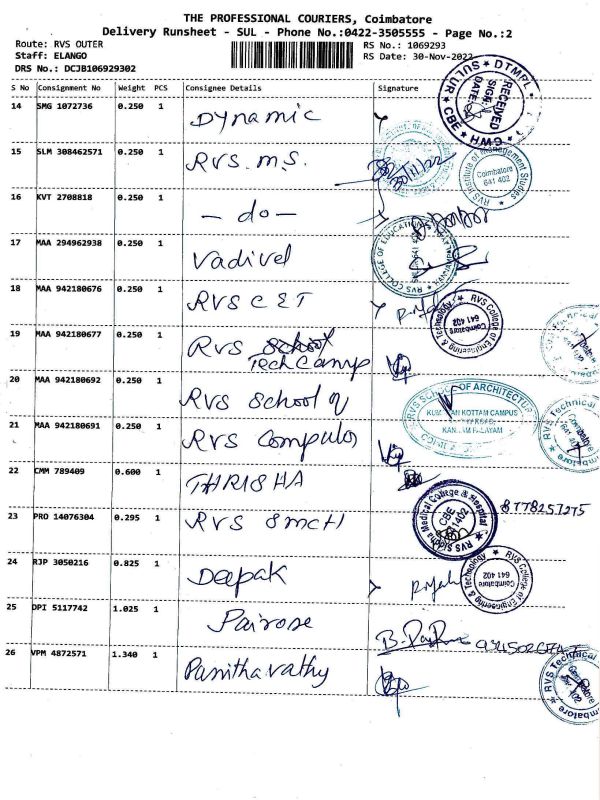 THE PROFESSIONAL COURIERS, Coimbatore
Delivery Runsheet - SUL - Phone No.:0422-3505555 - Page No.:2
Route: RVS OUTER
RS No.: 1069293
Staff: ELANGO
RS Date: 30-Nov-2022
DRS No.: DCJB106929302
S No Consignment No Weight PCS Consignee Details Signature
14 SMG 1072736 0.250 1 Dynamic
SULUR DTMPL CBE CWH
RECEIVED
SIGN:
DATE:
15 SLM 308462571 0.250 1 RVS. M.S. 30/11/22
RVS Institute of Management Studies
Coimbatore
641 402
16 KVT 2708818 0.250 1 - do -
17 MAA 294962938 0.250 1 Vadivel
RVS COLLEGE OF EDUCATION
18 MAA 942180676 0.250 1 RVS CET
RVS College of Engineering & Technology
Coimbatore
641 402
19 MAA 942180677 0.250 1 RVS School
Tech Camp
20 MAA 942180692 0.250 1 RVS School of
RVS SCHOOL OF ARCHITECTURE
KOTTAM CAMPUS
21 MAA 942180691 0.250 1 RVS Computer
RVS Technical Coimbatore
22 CMM 789409 0.600 1 THRISHA
23 PRO 14076304 0.295 1 RVS SMCH 8778257275
RVS Siddha Medical College & Hospital
CBE
641402
24 RJP 3050216 0.825 1 Deepak
RVS College of Engineering & Technology
Coimbatore
641 402
25 DPI 5117742 1.025 1 Pairose
26 VPM 4872571 1.340 1 Panithavathy
RVS Technical